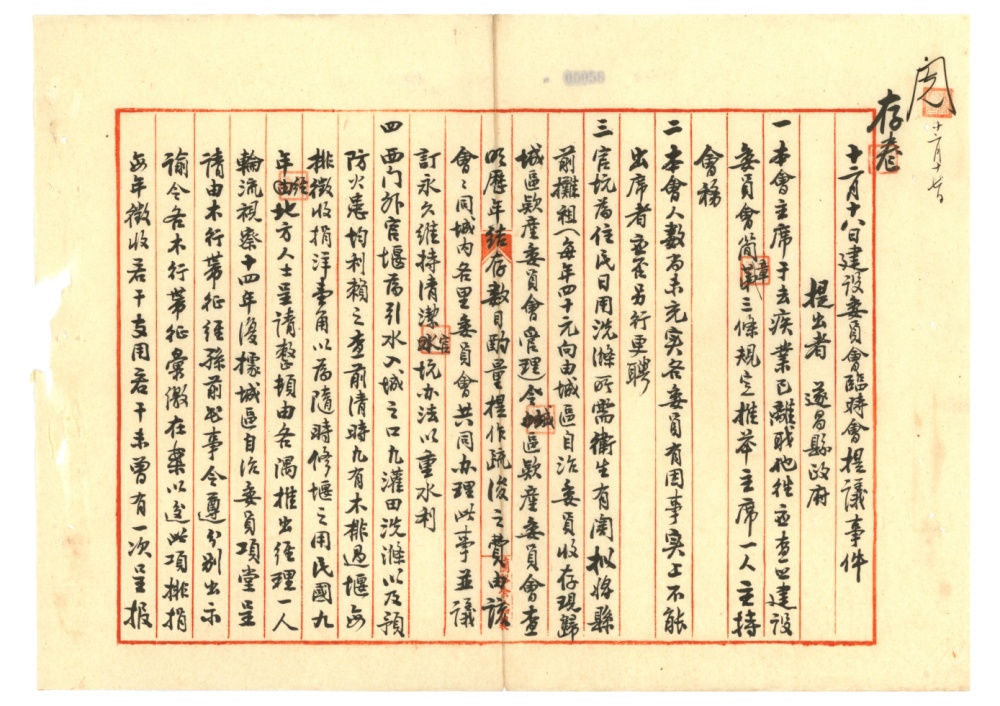 05056
十二月十七日
存卷
十二月十八日建設委員會臨時會提議事件
提出者　遂昌縣政府
一本會主席于去疾業已離職他往亟查照建設
委員會簡章第三條規定推举主席一人主持
會務
二本會人数尚未充实各委員有因事实上不能
出席者应否另行更聘
三官坑为住民日用洗滌所需衛生有関拟將縣
前攤租(每年四十元向由城區自治委員收存現歸
城區欵產委員會管理)令城區欵產委員會查
明歷年结存数目酌量提作疏浚之費由該
會會同城内各里委員會共同办理此事並議
訂永久維持清潔官坑办法以重水利
四西门外官堰为引水入城之口凡灌田洗滌以及預
防火患均利賴之查前清時凡有木排過堰每
排徵收捐洋壹角以为隨時修堰之用民國九
年經地方人士呈請整頓由各隅推出經理一人
輪流視察十四年復據城區自治委員項堂呈
請由木行帶征經孫前知事令遵分别出示
諭令各木行帶征彙缴在案以迄此項排捐
每年徵收若干支用若干未曾有一次呈报